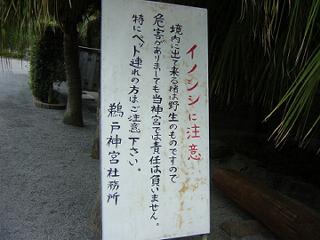 イノシシに注意
境内に出て来る猪は野生のものですので
危害がありましても当神宮では責任は負いません。
特にペット連れの方はご注意下さい。
鵜戸神宮社務所